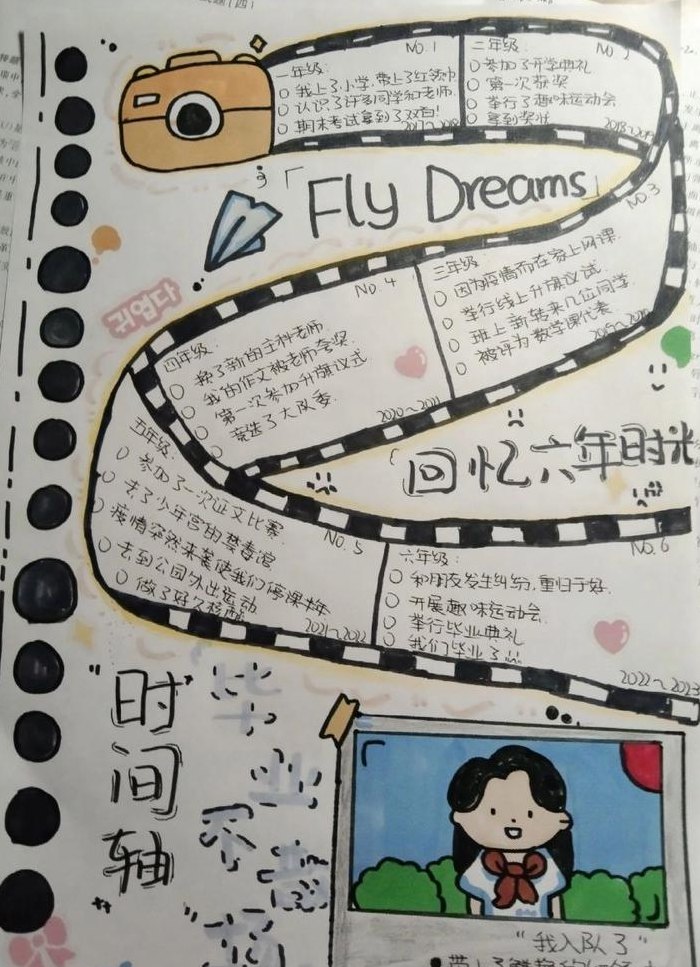 NO.1
一年级:
我上了小学,带上了红领巾
认识了许多同学和老师
期末考试拿到了双百!
2017~2018
三年级:
参加了开学典礼
第一次获奖
举行了趣味运动会
拿到奖状
2018~2019
「Fly Dreams」
NO.3
三年级
因为疫情而在家上网课.
举行线上升旗仪式
班上新转来几位同学.
被评为数学课代表.
2019~2020
귀엽다
NO.4
四年级:
换了新的主科老师
我的作文被老师夸奖.
第一次参加升旗仪式
竞选了大队委.
2020~2021
「回忆六年时光
NO.5
五年级:
参加了一次征文比赛.
去了少年宫的禁毒馆
疫情突然来袭使我们停课半年
去到公园外出运动
做了好久核酸
2021~2022
NO.6
六年级:
和朋友发生纠纷,重归于好.
开展趣味运动会.
举行毕业典礼
我们毕业了!!!
2022~2023
"时间轴"
毕业不
"我入队了"